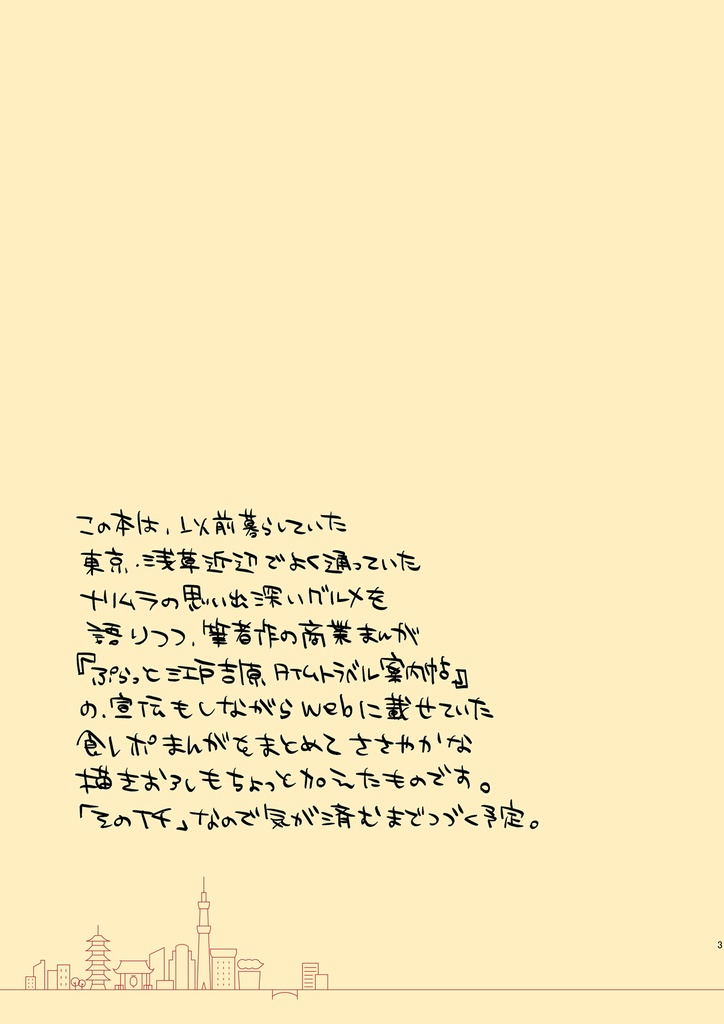 この本は、以前暮らしていた
東京・浅草近辺でよく通っていた
ナリムラの思い出深いグルメを
語りつつ、筆者作の商業まんが
『ぷらっと江戸吉原タイムトラベル案内帖』
の、宣伝もしながらwebに載せていた
食レポまんがをまとめてささやかな
描きおろしもちょっと加えたものです。
「その」なので気が済むまでつづく予定。
3